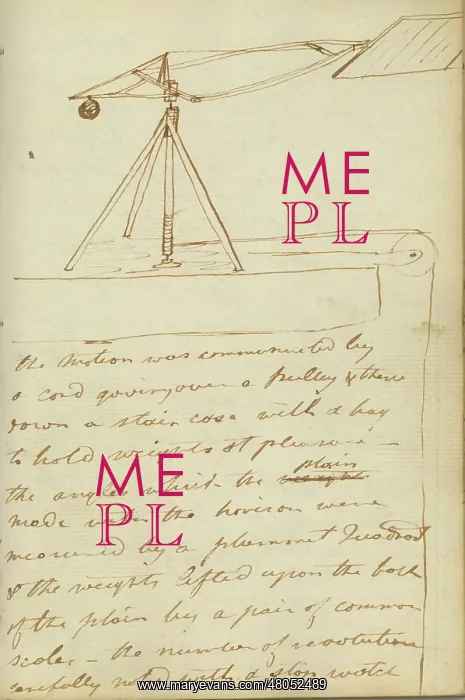 ME
PL
the motion was communicated by
a cord going over a pulley & thence
down a stair case with a bag
to hold weights at pleasure —
the angles which the plain
made with the horison were
measured by a plummet Quadrant
& the weights lifted upon the back
of the plain by a pair of common
scales — the number of revolutions
carefully noted with a stop watch
ME
PL
www.maryevans.com/48052489